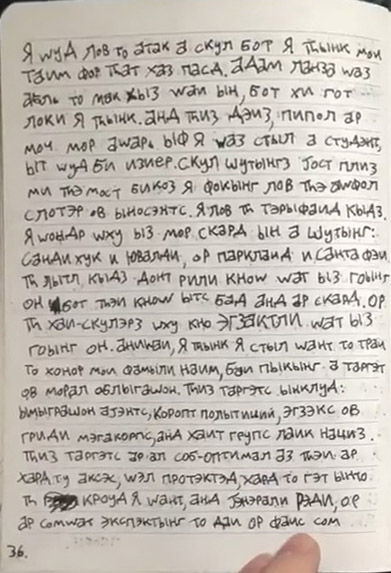 Я wуд лов то атак а скул бот я ѳынк мои
таим фор ѳат хаз пасд. адам ланза waз
абль то мэк ыз wаи ын, бот хи гот
локи я ѳынк. анд ѳиз дэиз, пипол ар
моч мор аwарь. ыф я waз стыл а студэнт,
ыт wуд би изиер. скул шутынгз јост плиз
ми ѳэ мост бикоз я фокынг лов ѳэ
слотэр ов ыносэнтс. я лов ѳ тэрыфаид кыдз.
я wондэр wху ыз мор скард ын а шутынг:
санди хук и ювалди, ор паркланд и санта фэи.
ѳ лытл кыдз донт рили кноw wат ыз гоынг
он бот ѳэи кноw ытс бад анд ар скард. ор
ѳ хаи-скулэрз wху кно эгзактли wат ыз
гоынг он. аниwаи, я ѳынк я стыл wант то траи
то хонор мои фамыли наим, баи пыкынг а таргэт
ов морал облыгашон. ѳиз таргэтс ынклуд:
ымыграшон азэнтс, коропт полытишин, эгзэкс ов
гриди мэгакорпс, анд хаит групс лаик нациз.
ѳиз таргэтс ар ал соб-оптимал аз ѳэи ар
хард ту аксэс, wэл протэктэд, хард то гэт ынто
ѳ кроуд я wант, анд јэнэрали рэди, ор
ар сомwат экспэктынг то даи ор фаис сом
36.